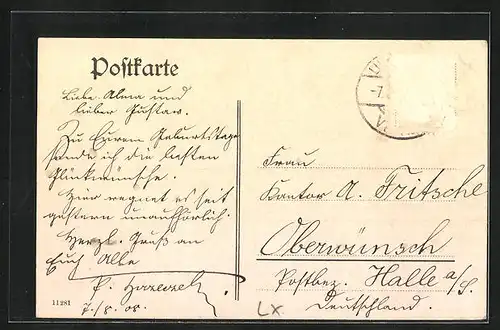 Postkarte
Liebe Alma und
lieber Gustav.
Zu Eurem Geburtstage
sende ich die besten
Glückwünsche.
Hier regnet es seit
gestern unaufhörlich.
Herzl. Gruß an
Euch Alle
7./8. 08.
11281
Frau
Kantor A. Fritsche
Oberwünsch
Postbez. Halle a/S.
Deutschland.
LX